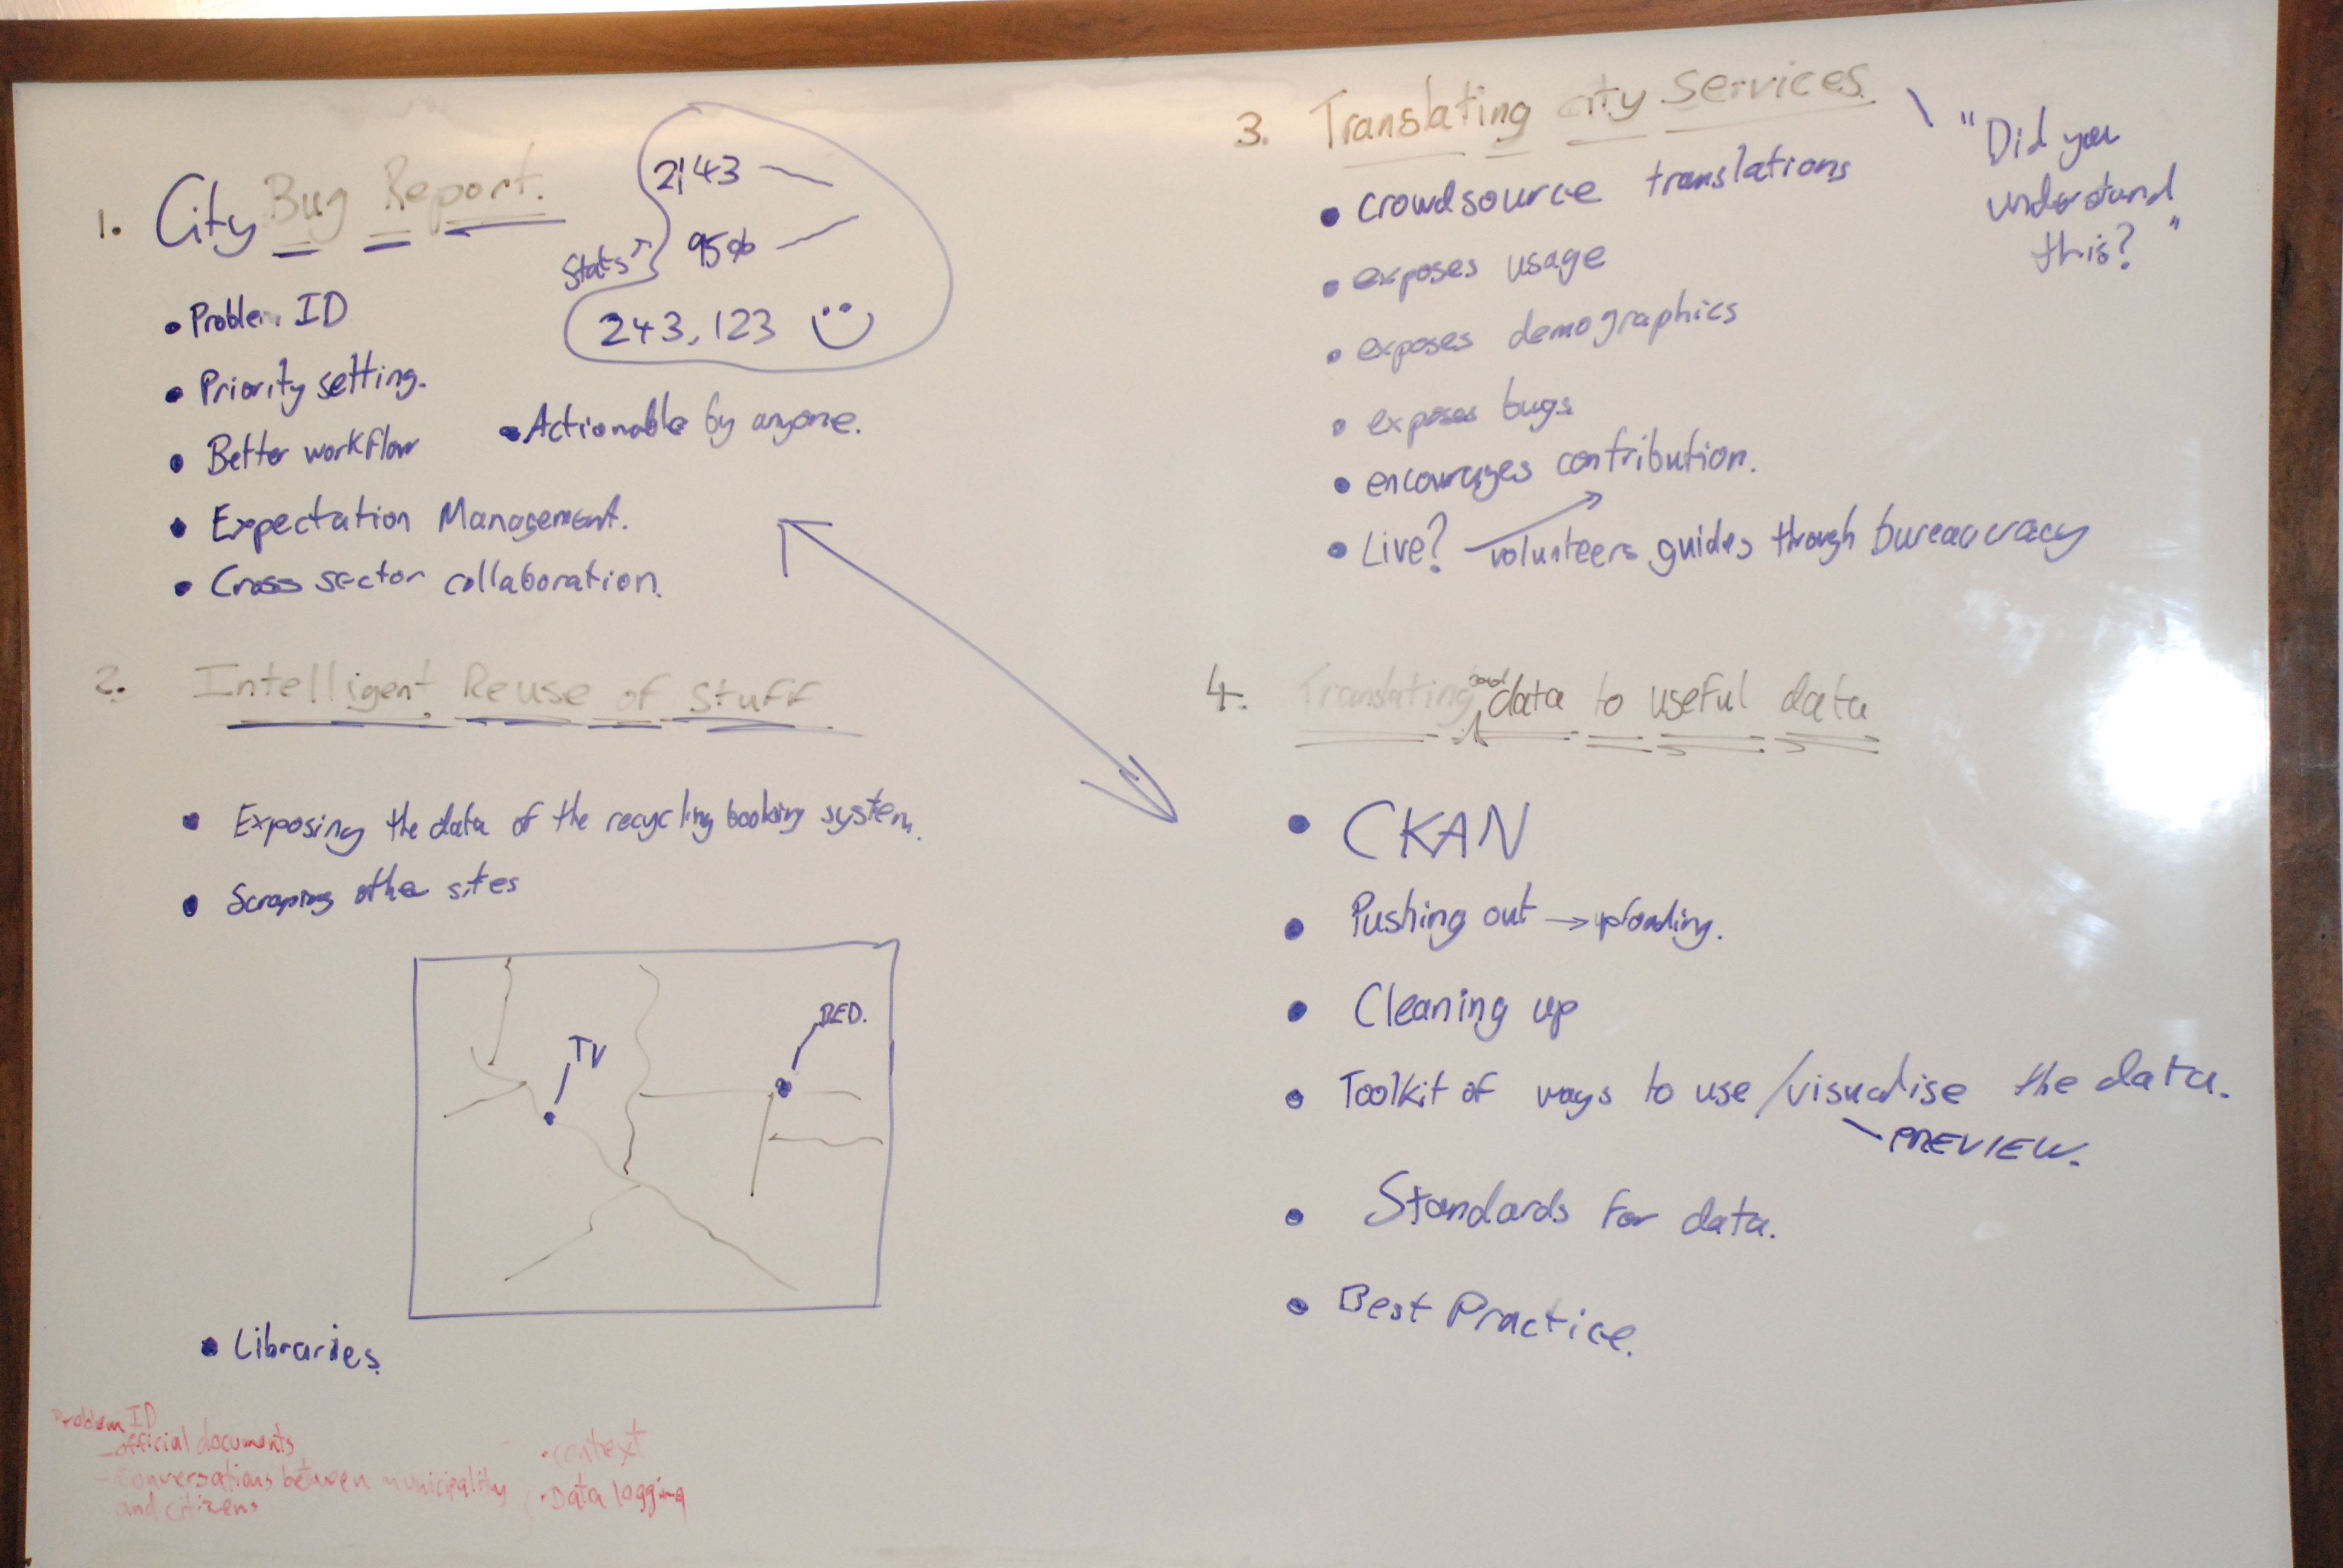 1. City Bug Report.
Stats
2143
95%
243,123
• Problem ID
• Priority setting.
• Better workflow
• Actionable by anyone.
• Expectation Management.
• Cross sector collaboration.
2. Intelligent Reuse of Stuff
• Exposing the data of the recycling booking system.
• Scraping other sites
TV
BED.
• Libraries.
Problem ID
- official documents
- Conversations between municipality
and citizens
• context
• Data logging
3. Translating city services
"Did you
understand
this?"
• crowdsource translations
• exposes usage
• exposes demographics
• exposes bugs
• encourages contribution.
• Live? volunteers guides through bureaucracy
4. Translating data to useful data
• CKAN
• Pushing out → uploading.
• Cleaning up
• Toolkit of ways to use/visualise the data.
PREVIEW.
• Standards for data.
• Best Practice.